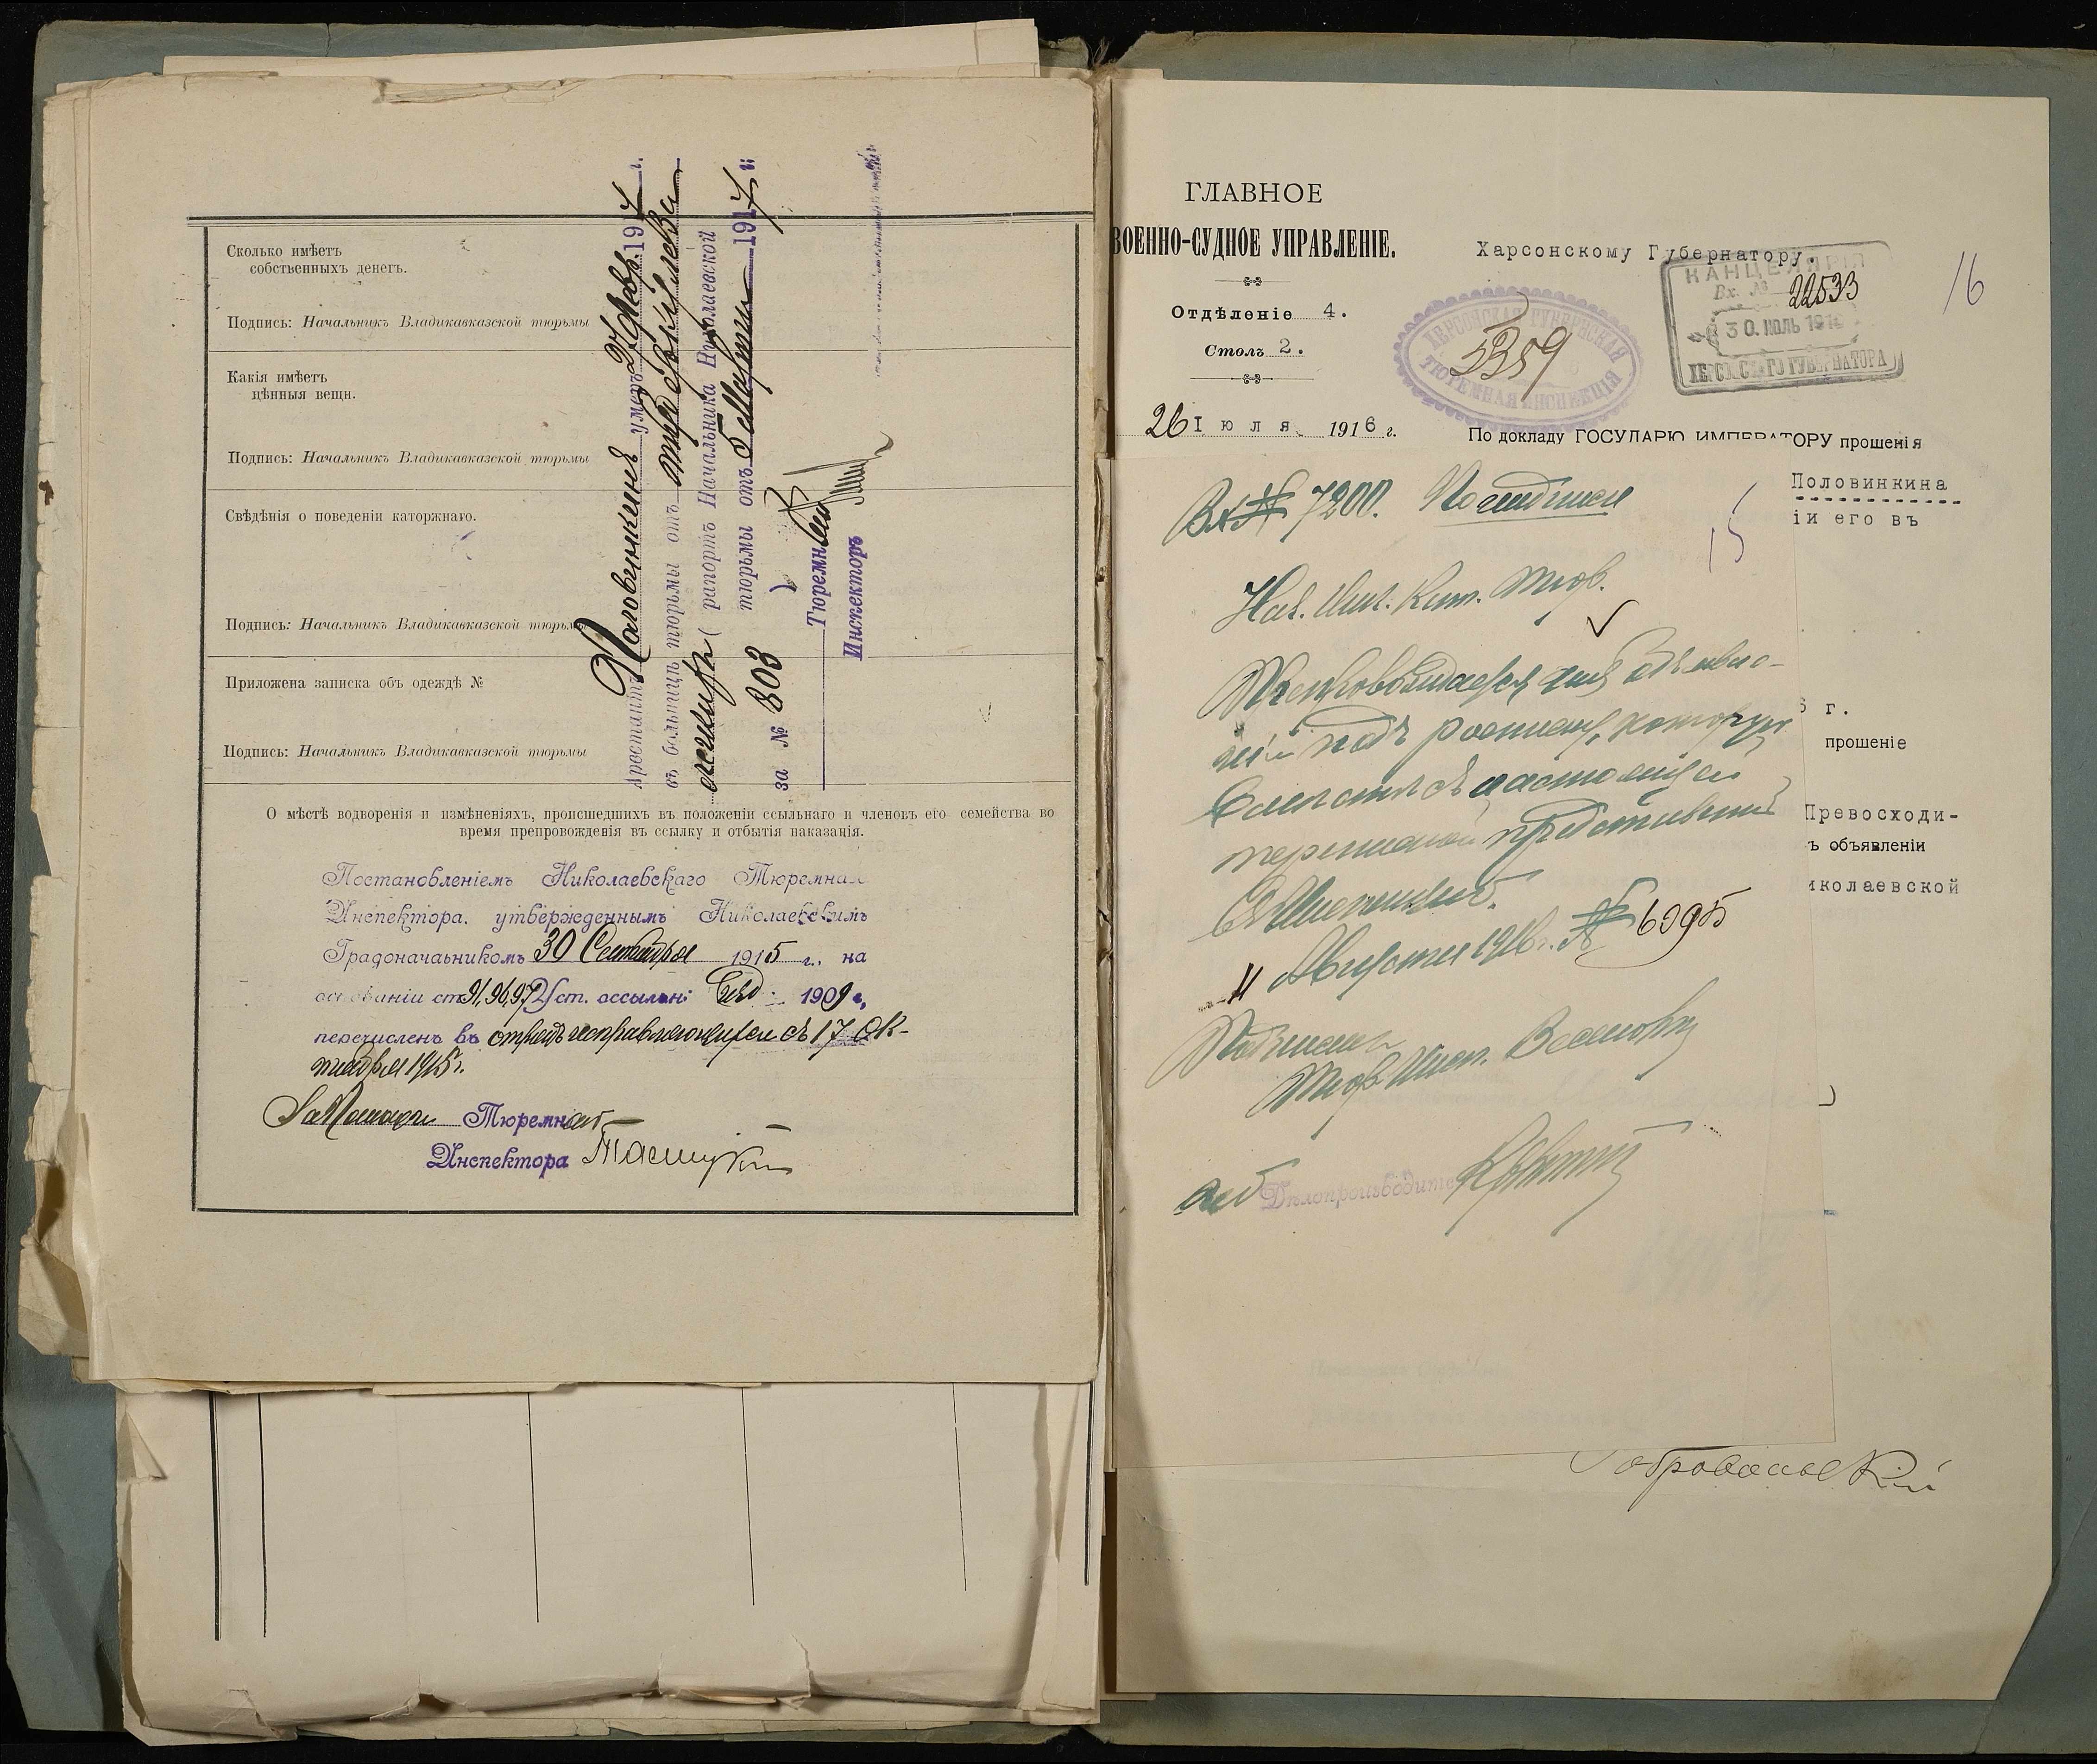 Сколько имѣетъ
собственныхъ денегъ.
Подпись: Начальникъ Владикавказской тюрьмы
Какія имѣетъ
цѣнныя вещи.
Подпись: Начальникъ Владикавказской тюрьмы
Свѣдѣнія о поведеніи каторжнаго.
Подпись: Начальникъ Владикавказской тюрьмы
Приложена записка объ одеждѣ №
Подпись: Начальникъ Владикавказской тюрьмы
Арестантъ Половинкинъ умеръ 27 Февр. 1917 г.
въ больницѣ тюрьмы отъ туберкулеза
легкихъ (рапортъ Начальника Николаевской
тюрьмы отъ 5 Марта 1917 г.
за № 803)
Тюремн
Инспекторъ
О мѣстѣ водворенія и измѣненіяхъ, происшедшихъ въ положеніи ссыльнаго и членовъ его семейства во
время препровожденія въ ссылку и отбытія наказанія.
Постановленіемъ Николаевскаго Тюремна
Инспектора, утвержденнымъ Николаевскимъ
Градоначальникомъ 30 Сентября 1915 г., на
основаніи ст. 91, 96, 97 Уст. о ссыльн: Изд. 1909 г.,
перечисленъ въ отрядъ исправляющихся съ 17 Ок-
тября 1915 г.
За Помощн Тюремнаго
Инспектора
ГЛАВНОЕ
ВОЕННО-СУДНОЕ УПРАВЛЕНІЕ.
Отдѣленіе 4.
Столъ 2.
26 Іюля 1916 г.
Харсонскому Губернатору.
КАНЦЕЛЯРІЯ
Вх. № 22533
30. ИЮЛЬ 191
ХЕРСОНСКАГО ГУБЕРНАТОРА
16
ХЕРСОНСКАЯ ГУБЕРНСКАЯ
5359
ТЮРЕМНАЯ ИНСПЕКЦІЯ
По докладу ГОСУДАРЮ ИМПЕРАТОРУ прошенія
Половинкина
іи его въ
г.
прошеніе
Превосходи-
ъ объявленіи
иколаевской
Вх № 7200.
15
Нач. Ник. Кат. Тюр.
Препровождается для объявле-
нія подъ росписку, которую
вмѣстѣ съ настоящей
перепиской представить
въ Инспекцію.
11 Августа 1916 г. № 6095
Подписалъ
Тюр. Инсп.
Дѣлопроизводите